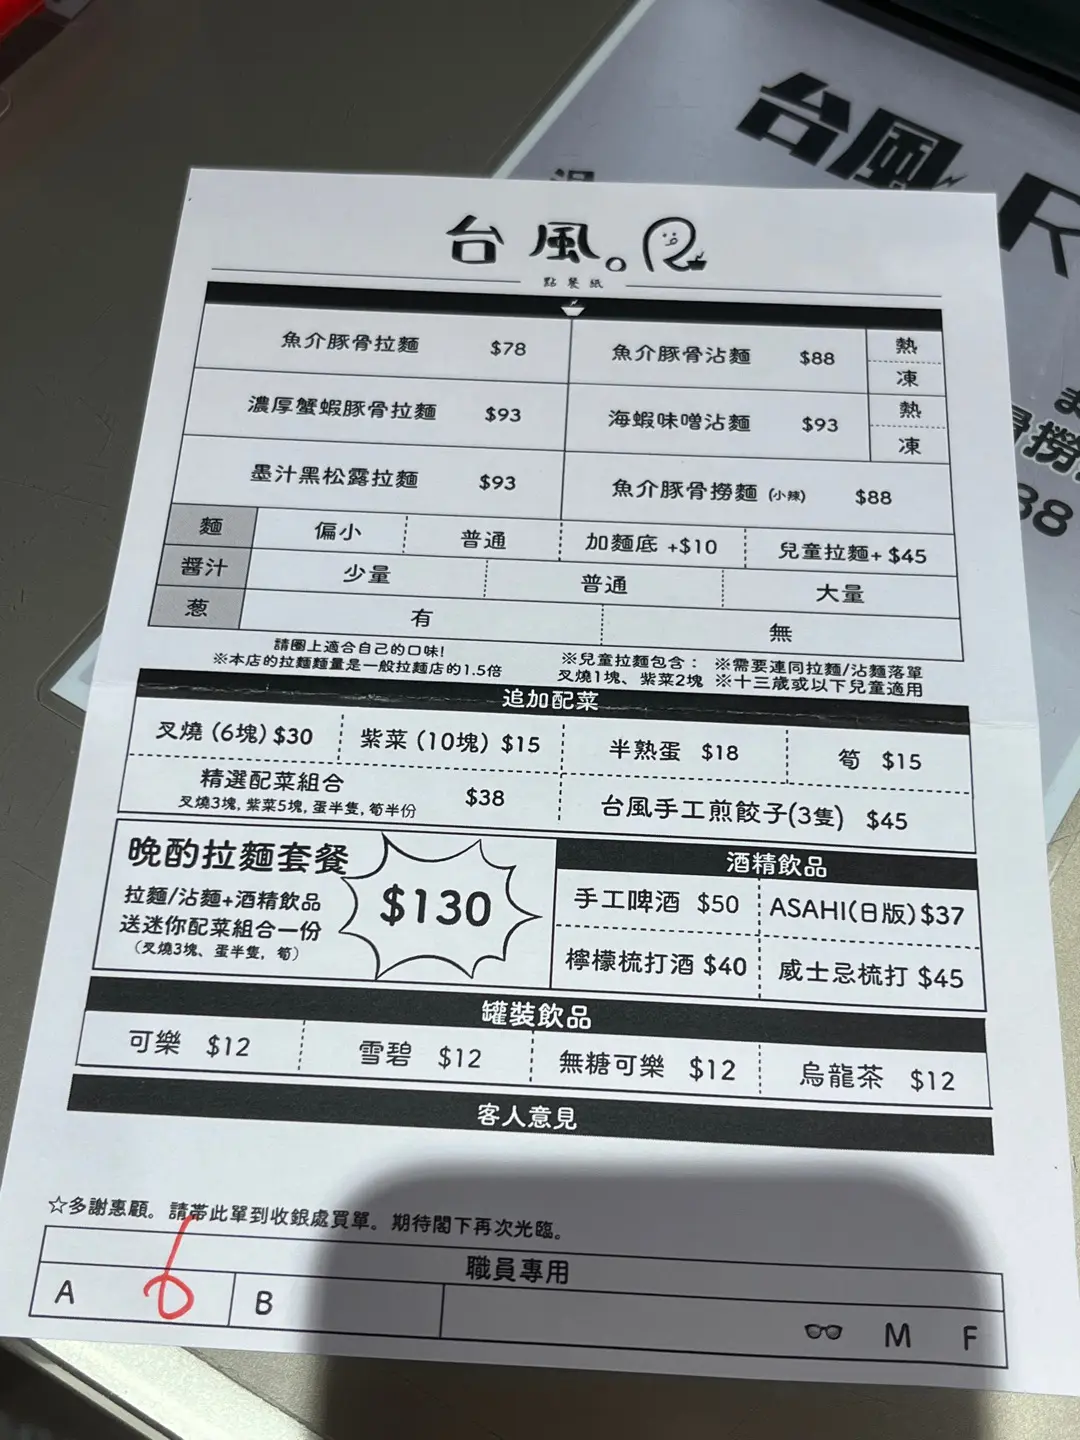 台風
R
台風。R
點餐紙
魚介豚骨拉麵 $78
魚介豚骨沾麵 $88 熱 凍
濃厚蟹蝦豚骨拉麵 $93
海蝦味噌沾麵 $93 熱 凍
墨汁黑松露拉麵 $93
魚介豚骨撈麵 (小辣) $88
麵 偏小 普通 加麵底 +$10 兒童拉麵+ $45
醬汁 少量 普通 大量
葱 有 無
請圈上適合自己的口味!
※本店的拉麵麵量是一般拉麵店的1.5倍
※兒童拉麵包含： ※需要連同拉麵/沾麵落單
叉燒1塊、紫菜2塊 ※十三歲或以下兒童適用
追加配菜
叉燒 (6塊) $30 紫菜 (10塊) $15 半熟蛋 $18 筍 $15
精選配菜組合 $38
叉燒3塊, 紫菜5塊, 蛋半隻, 筍半份
台風手工煎餃子(3隻) $45
晚酌拉麵套餐
拉麵/沾麵+酒精飲品
送迷你配菜組合一份
(叉燒3塊、蛋半隻, 筍)
$130
酒精飲品
手工啤酒 $50 ASAHI(日版) $37
檸檬梳打酒 $40 威士忌梳打 $45
罐裝飲品
可樂 $12 雪碧 $12 無糖可樂 $12 烏龍茶 $12
客人意見
☆多謝惠顧。請帶此單到收銀處買單。期待閣下再次光臨。
職員專用
A 6 B M F
撈
88